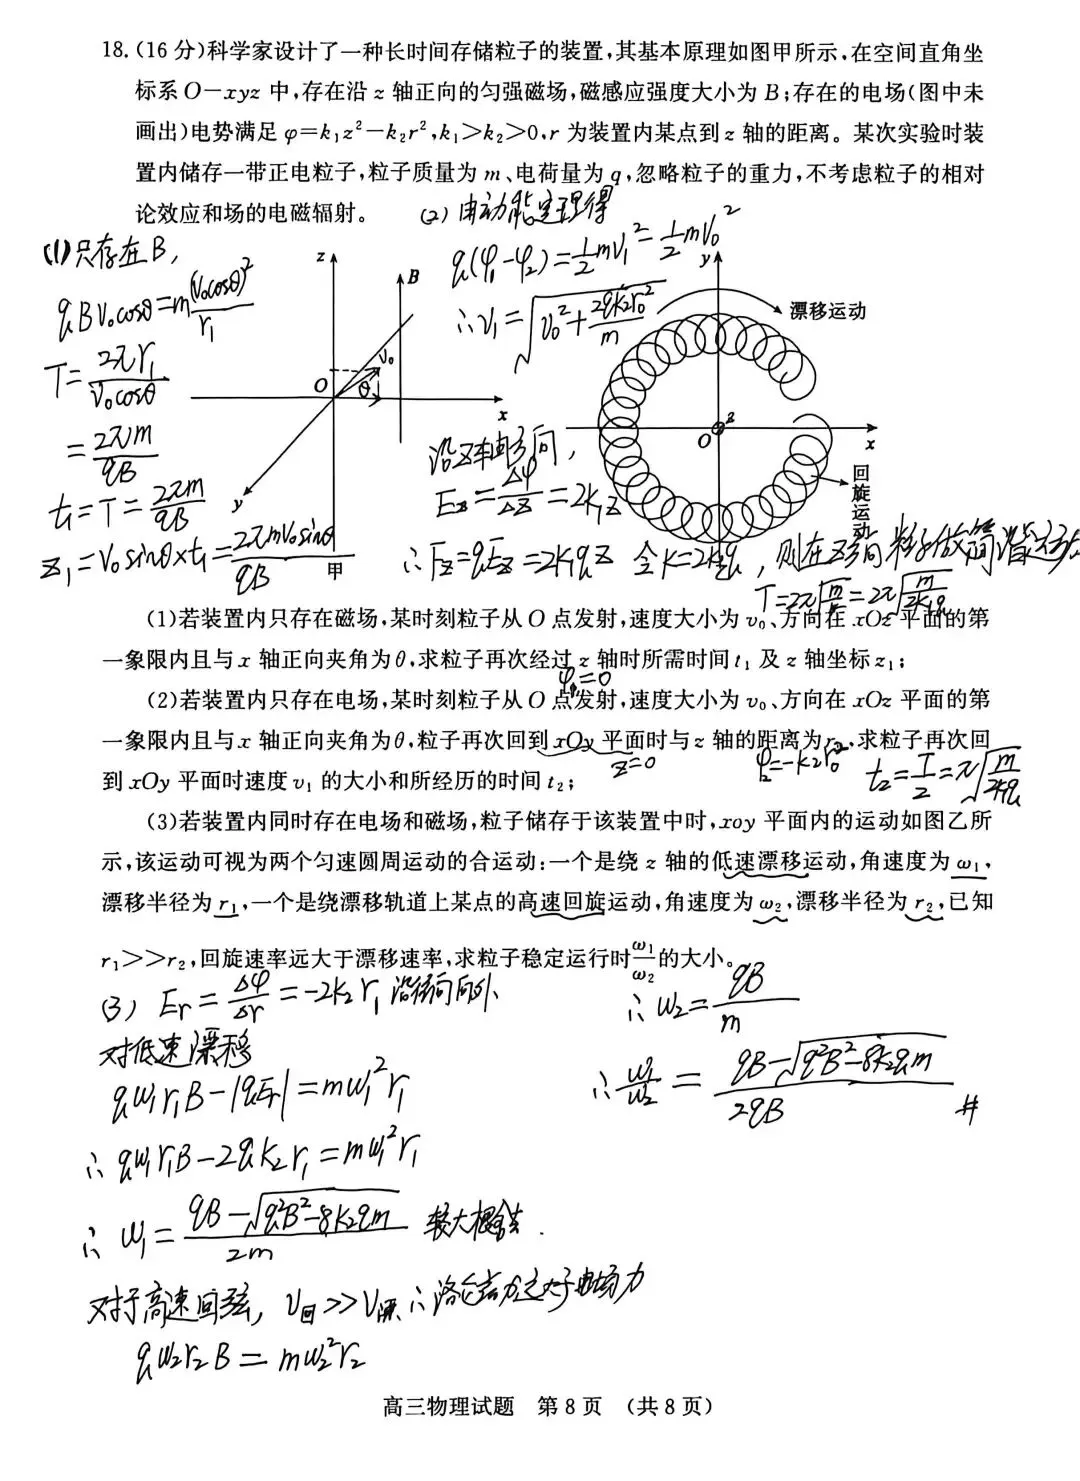 18.(16分)科学家设计了一种长时间存储粒子的装置,其基本原理如图甲所示,在空间直角坐
标系O-xyz中,存在沿z轴正向的匀强磁场,磁感应强度大小为B;存在的电场(图中未
画出)电势满足φ=k₁z²-k₂r²,k₁>k₂>0,r为装置内某点到z轴的距离。某次实验时装
置内储存一带正电粒子,粒子质量为m、电荷量为q,忽略粒子的重力,不考虑粒子的相对
论效应和场的电磁辐射。
(2)由动能定理得
(1)只存在B,
qBv₀cosθ=m(v₀cosθ)²/r₁
T=2πr₁/v₀cosθ
=2πm/qB
t₁=T=2πm/qB
z₁=v₀sinθ×t₁=2πmv₀sinθ/qB
z
B
v₀
O
θ
x
y
甲
q(φ₁-φ₂)=½mv₁²=½mv₀²
∴v₁=√(v₀²+2qk₂r₀²/m)
y
漂移运动
z
O
x
回旋运动
沿z轴方向,
Ez=Δφ/Δz=2k₁z
∴Fz=qEz=2k₁qz 令k=2k₁q,则在z方向粒子做简谐运动
T=2π√(m/k)=2π√(m/2k₁q)
(1)若装置内只存在磁场,某时刻粒子从O点发射,速度大小为v₀、方向在xOz平面的第
一象限内且与x轴正向夹角为θ,求粒子再次经过z轴时所需时间t₁及z轴坐标z₁;
φ₁=0
(2)若装置内只存在电场,某时刻粒子从O点发射,速度大小为v₀、方向在xOz平面的第
一象限内且与x轴正向夹角为θ,粒子再次回到xOy平面时与z轴的距离为r₀,求粒子再次回
z=0
φ₂=-k₂r₀²
到xOy平面时速度v₁的大小和所经历的时间t₂;
t₂=T/2=π√(m/2k₁q)
(3)若装置内同时存在电场和磁场,粒子储存于该装置中时,xoy平面内的运动如图乙所
示,该运动可视为两个匀速圆周运动的合运动:一个是绕z轴的低速漂移运动,角速度为ω₁,
漂移半径为r₁,一个是绕漂移轨道上某点的高速回旋运动,角速度为ω₂,漂移半径为r₂,已知
r₁>>r₂,回旋速率远大于漂移速率,求粒子稳定运行时ω₁/ω₂的大小。
(3) Er=Δφ/Δr=-2k₂r₁ 沿径向向外
对低速漂移
qω₁r₁B-|qEr|=mω₁²r₁
∴qω₁r₁B-2qk₂r₁=mω₁²r₁
∴ω₁=(qB-√(q²B²-8k₂qm))/2m 较大根舍去.
对于高速回旋,v回>>v漂,∴洛仑兹力远大于电场力
qω₂r₂B=mω₂²r₂
∴ω₂=qB/m
∴ω₁/ω₂=(qB-√(q²B²-8k₂qm))/2qB #
高三物理试题 第8页 (共8页)